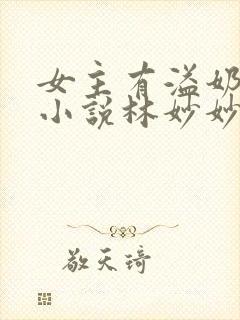 女主有溢奶
小说林妙妙
敬天琦